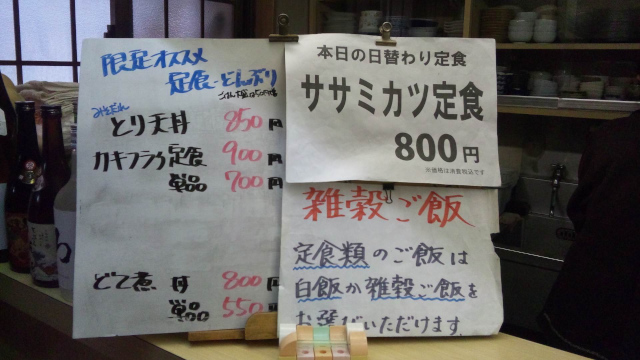 限定オススメ
定食・どんぶり
みそだれ
とり天丼 850円
カキフライ定食 900円
単品 700円
どて煮 丼 800円
単品 550
本日の日替わり定食
ササミカツ定食
800円
※価格は消費税込です
雑穀ご飯
定食類のご飯は
白飯か雑穀ご飯を
お選びいただけます